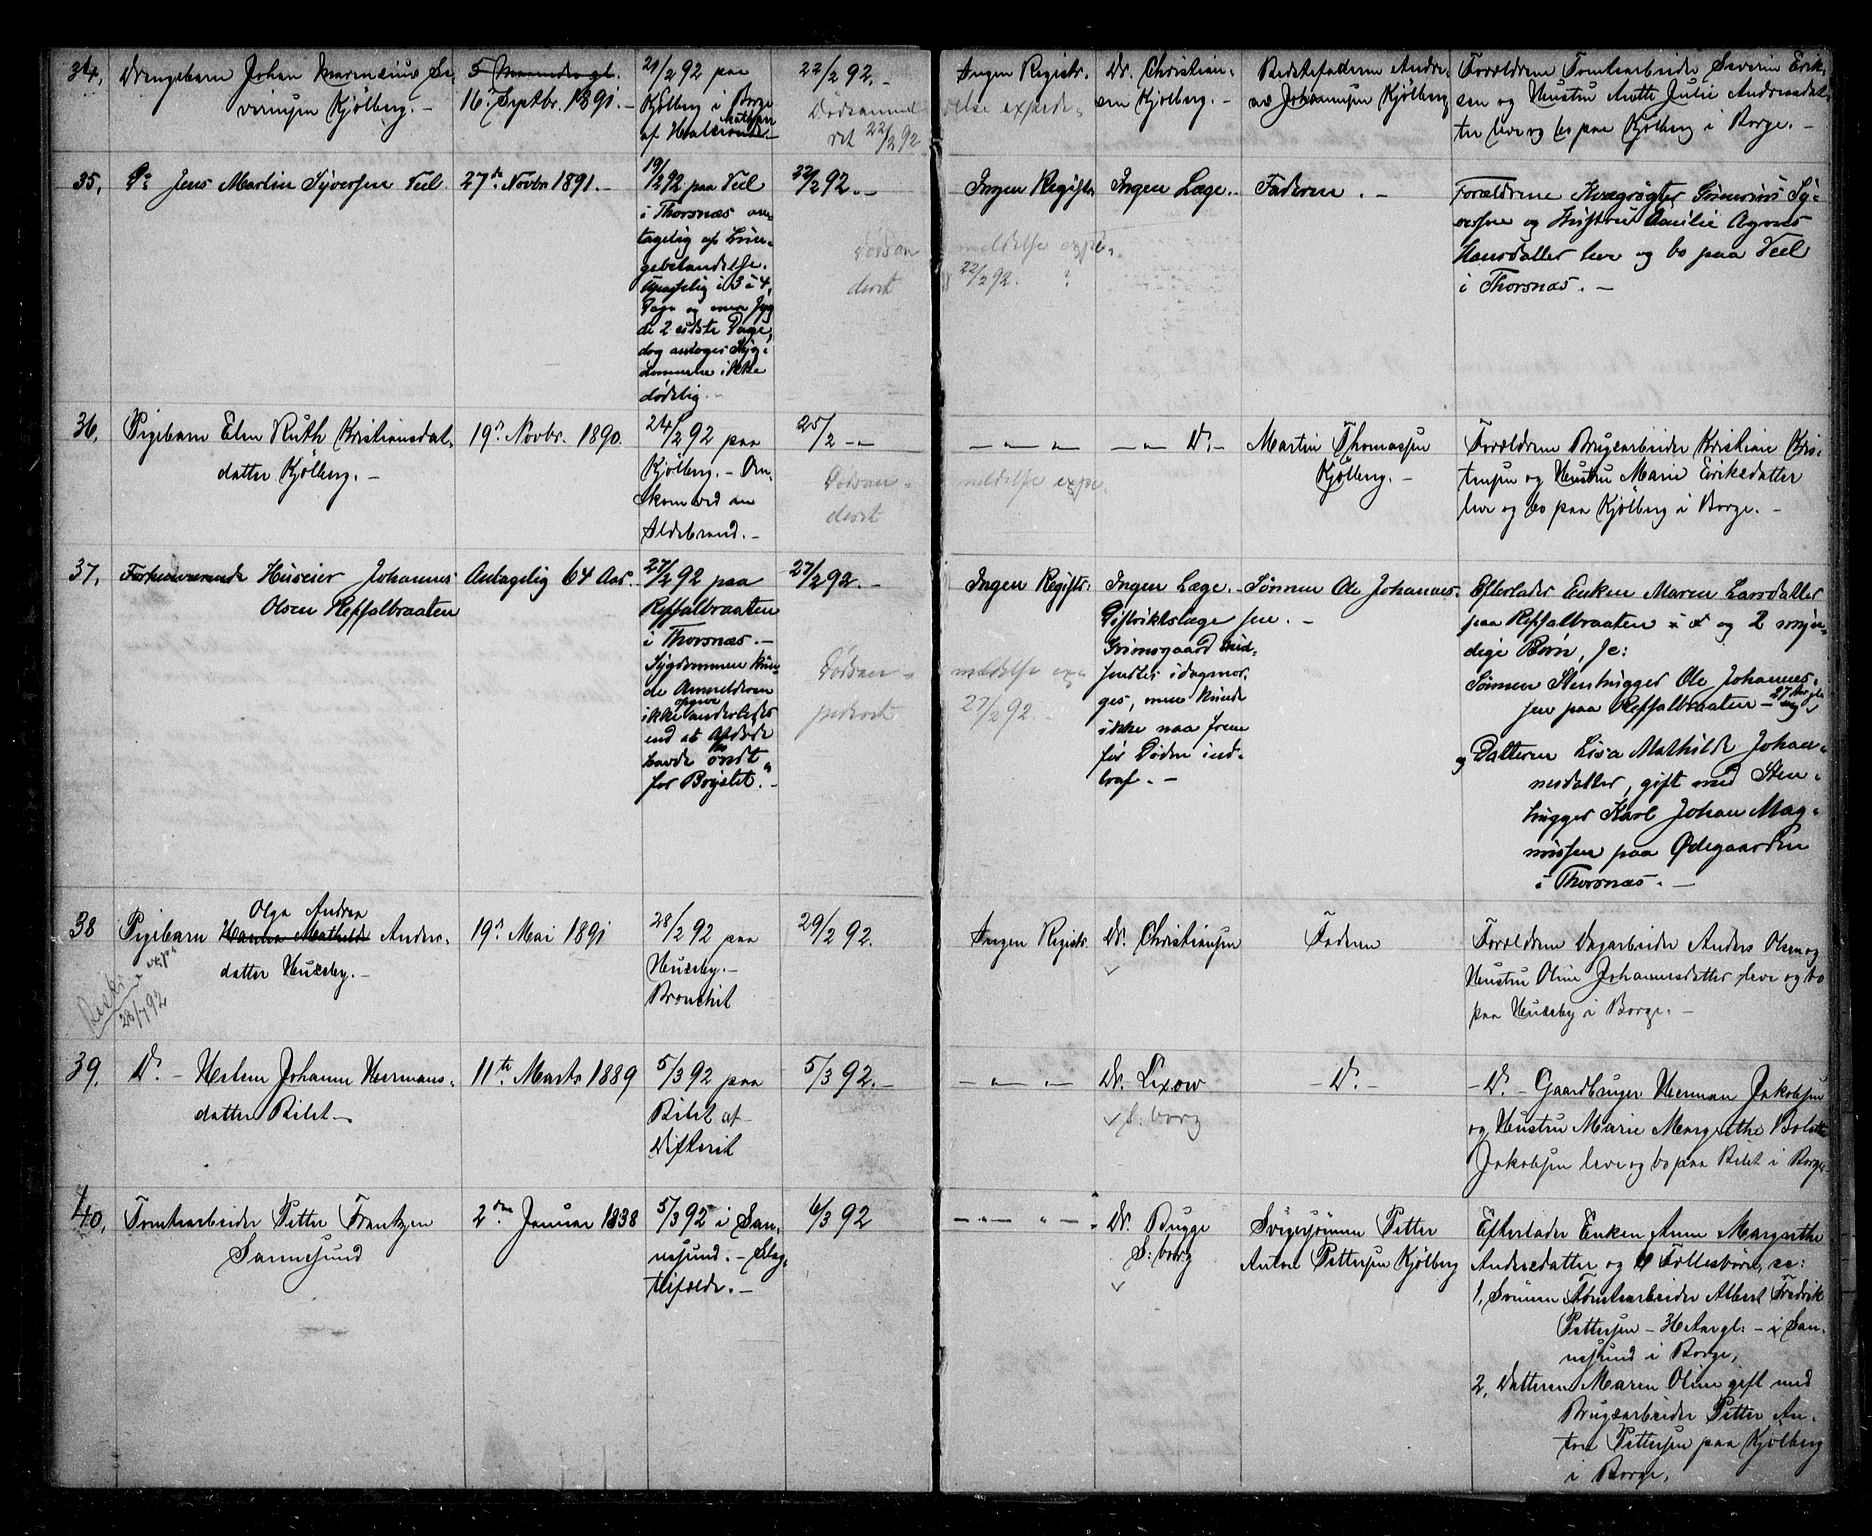 34, Drengebarn Johan Marensius Se-
verinsen Kjölberg. –
5 Maaneder gl.
16de Septbr. 1891. –
21/2 92 paa
Kjölberg i Borge
af Halsonde
22/2 92. –
Dødsanmel
22/2 92
Ingen Registr.
Dr. Christian-
sen Kjölberg. –
Bedstefaderen Andre-
as Johannesen Kjölberg
Forældrene Tomtearbeider Severin Erik-
sen og Hustru Anette Julie Andreasdat-
ter leve og bo paa Kjölberg i Borge. –
35, Do Jens Martin Syversen Veel
27de Novbr 1891. –
19/2 92 paa Veel
i Thorsnæs an-
tagelig af Lun-
gebetændelse.
Upasselig i 3 à 4
Dage og mere syg
de 2 sidste Dage,
dog antoges Syg-
dommen ikke
dødelig. –
22/2 92. –
Dødsan
meldelse expe-
deret
22/2 92. ?
Ingen Registr.
Ingen Læge. –
Faderen. –
Forældrene Kvægrøgter Syversen og Hustru Emilie Agnes
Hansdatter leve og bo paa Veel
i Thorsnæs. –
36, Pigebarn Elen Ruth Kristiansdat-
datter Kjölberg. –
19de Novbr. 1890.
24/2 92 paa
Kjölberg. – Om-
kom ved en
Ildebrand. –
25/2 – " –
Dødsan-
meldelse expe.
deret
– " – "
– " – Do –
Martin Thomassen
Kjölberg. –
Forældrene Brugsarbeider Kristian Kris-
tensen og Hustru Marie Eriksdatter
leve og bo paa Kjölberg i Borge. –
37, Forhenværende Huseier Johannes
Olsen Refsalbraaten
Antagelig 64 Aar. –
27/2 92 paa
Refsalbraaten
i Thorsnæs. –
Sygdommen kun-
de Anmelderen
ikke opgive anderledes
end at Afdøde
havde havt ondt
for Brystet. –
27/2 92. –
Dødsan-
meldelse exp
pederet
27/2 92
Ingen Registr.
Ingen Læge. –
Distriktslæge
Grimsgaard bud-
sendtes idagmor-
ges, men kunde
ikke naa frem
før Døden ind-
traf. –
Sønnen Ole Johannes-
sen. –
Efterlader Enken Maren Larsdatter
paa Refsalbraaten og 2 myn-
dige Børn, se:
Sønnen Stenhugger Ole Johannes-
sen paa Refsalbraaten – 27 Aar gl.
og Datteren Lisa Mathilde Johan-
nesdatter, gift med Sten-
hugger Karl Johan Mag-
nussen paa Ødegaarden
i Thorsnæs. –
38 Pigebarn Hanna Mathilde Anders-
Olga Andrea
datter Huseby. –
exp.
28/7 92
19de Mai 1891
28/2 92 paa
Huseby. –
Bronchit
29/2 92.
Ingen Registr.
Dr. Christiansen
Faderen
Forældrene Dagarbeider Anders Olsen og
Hustru Oline Johannesdatter leve og bo
paa Huseby i Borge. –
39, Do – Helene Johanne Hermans-
datter Bilet –
11te Marts 1889
5/3 92 paa
Bilet af
Difterit
5/3 92. –
– " – "
Dr. Lexow
S: borg
– Do –
– Do – Gaardbruger Herman Jakobsen
og Hustru Marie Margrethe Bolette
Jakobsen leve og bo paa Bilet i Borge
40, Tomtearbeider Petter Frantzen
Sannesund
2den Januar 1838
5/3 92 i San-
nesund. – Slag-
tilfælde. –
6/3 92
– " – " –
Dr. Bugge
S: borg
Svigersønnen Petter
Anton Pettersen Kjölberg
Efterlader Enken Anne Margrethe
Andersdatter og Fellesbørn, se:
1, Sønnen Tomtearbeider Albert Fredrik
Pettersen – Aar gl: – i San-
nesund i Borge,
2, Datteren Maren Oline gift med
Brugsarbeider Petter An-
ton Pettersen paa Kjölberg
i Borge,